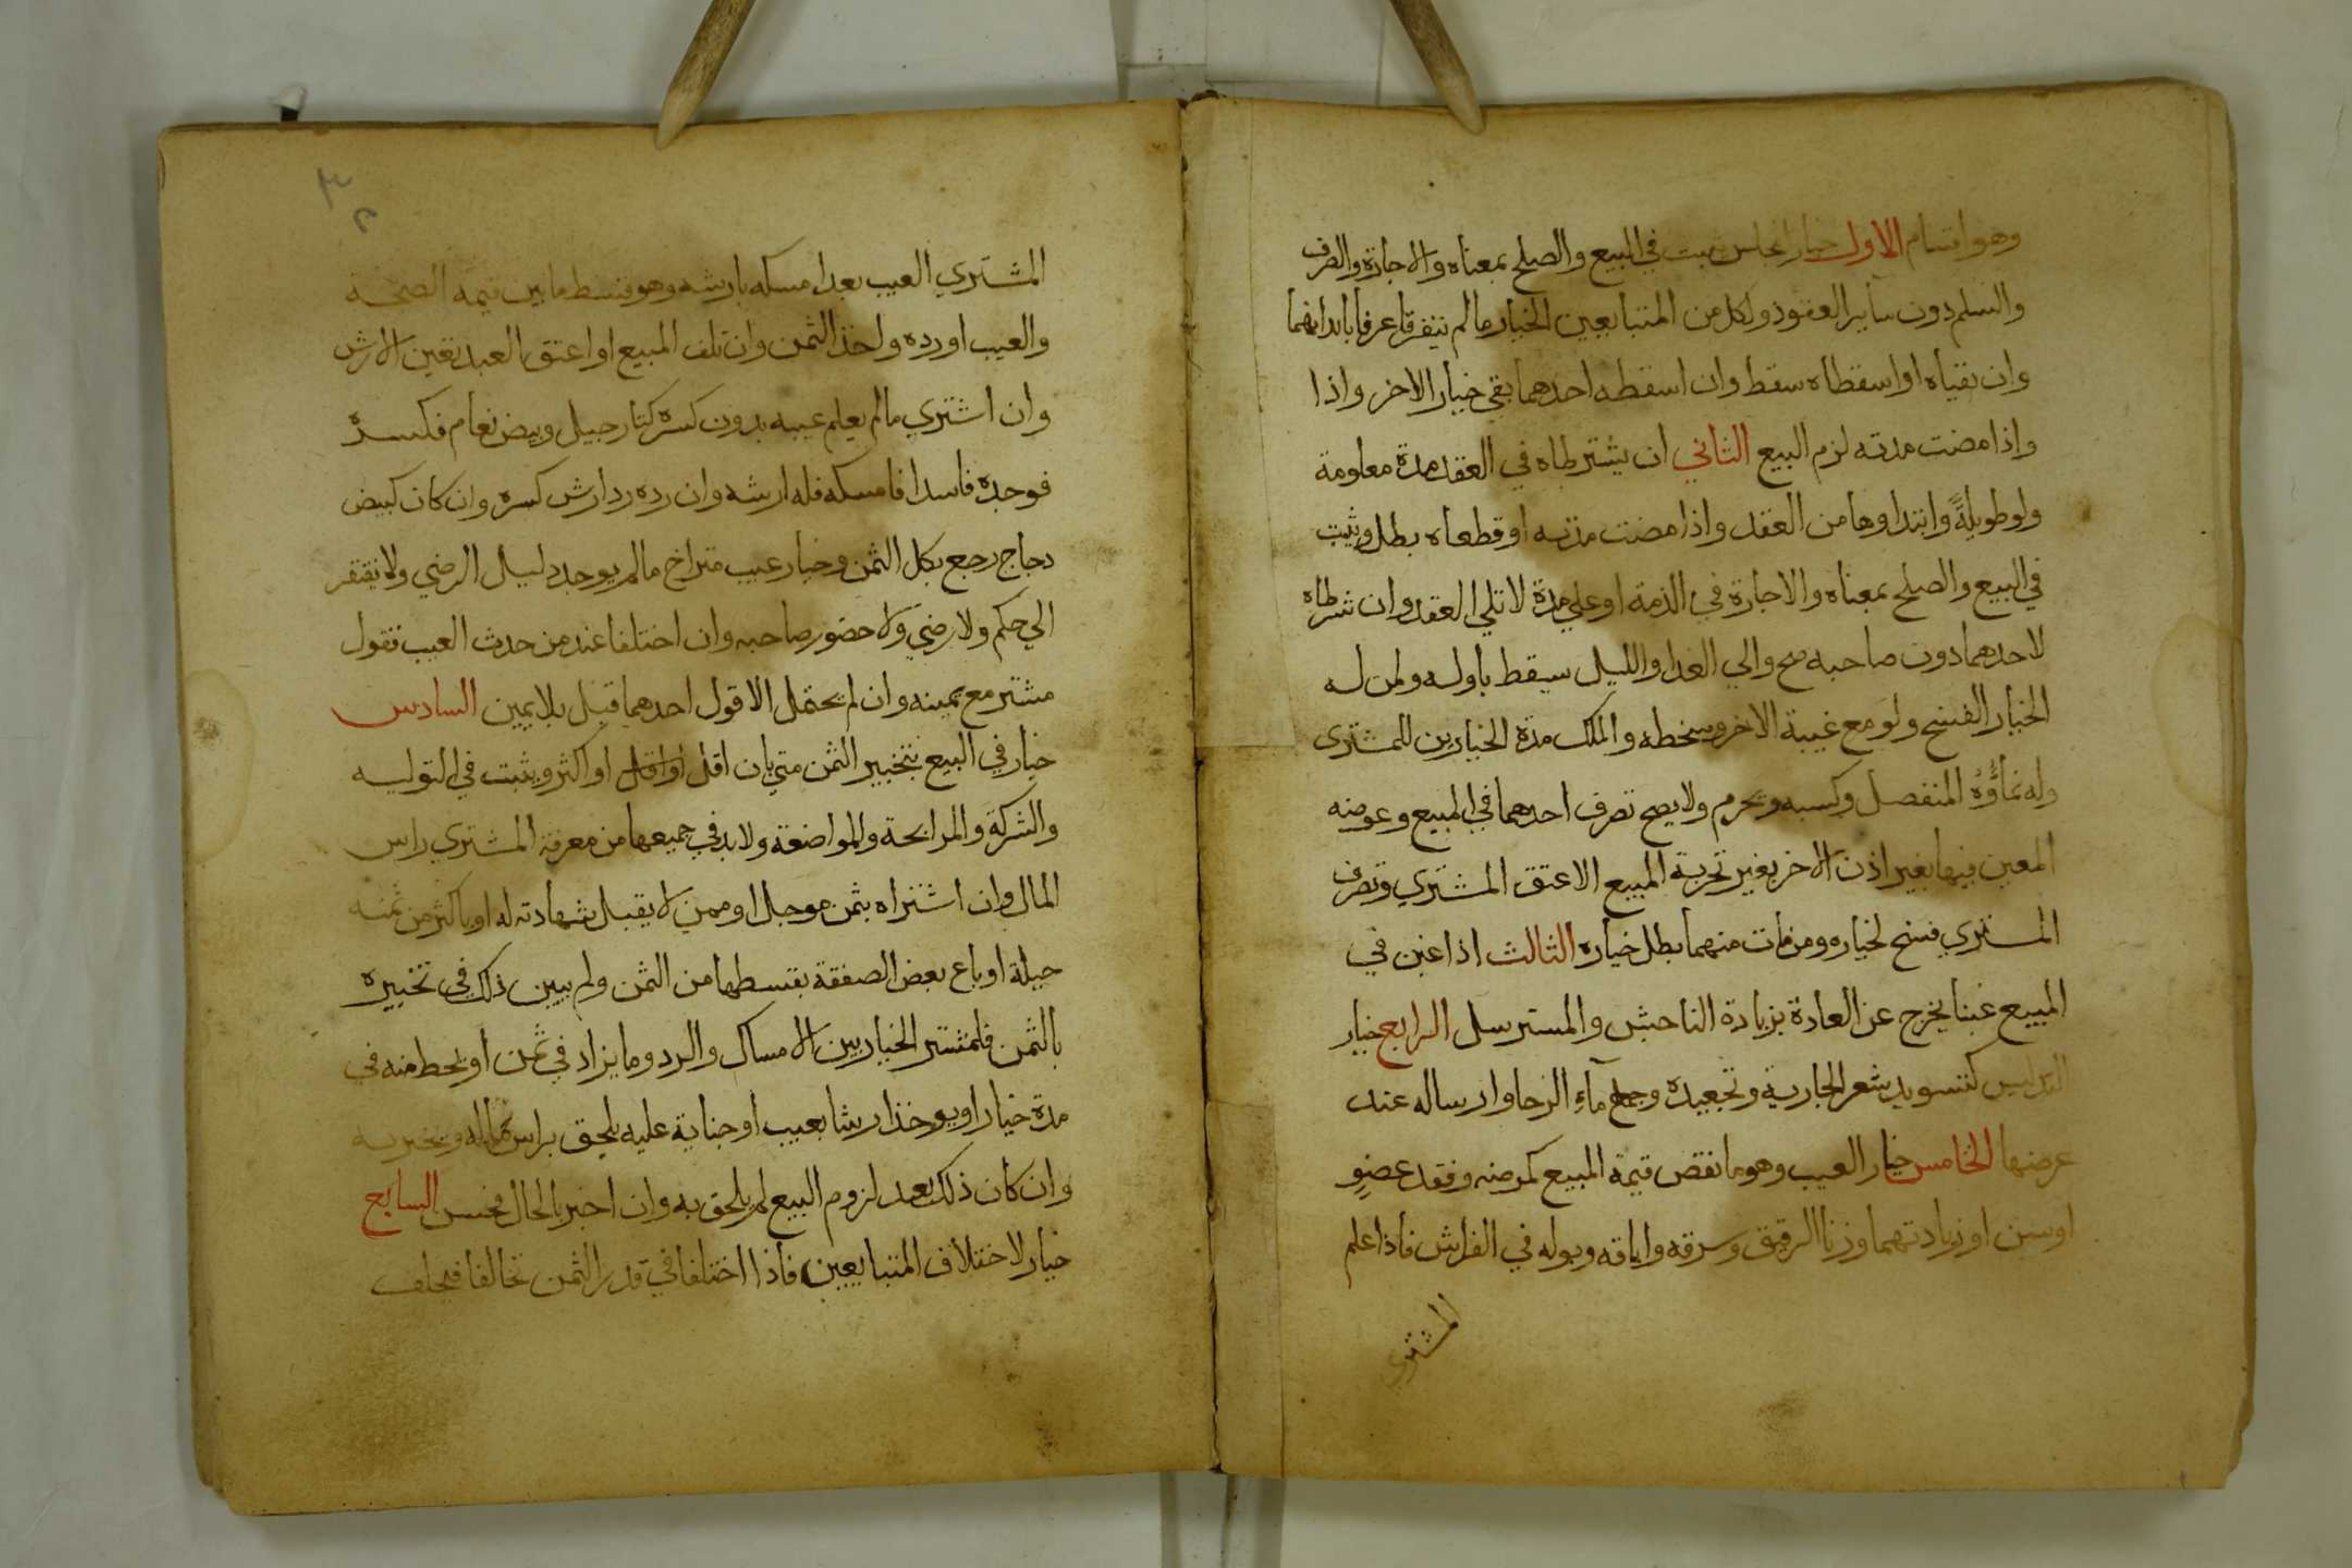 وهو اقسام الاول خيار المجلس يثبت في البيع والصلح بمعناه والاجارة والصرف
والسلم دون ساير العقود ولكل من المتبايعين الخيار ما لم يتفرقا عرفا بابدانهما
وان نفياه او اسقطاه سقط وان اسقطه احدهما بقي خيار الاخر واذا
واذا مضت مدته لزم البيع الثاني ان يشترطاه في العقد مدة معلومة
ولو طويلةً وابتداوها من العقد واذا مضت مدته او قطعاه بطل ويثبت
في البيع والصلح بمعناه والاجارة في الذمة او علي مدة لا تلي العقد وان شرطاه
لاحدهما دون صاحبه صح والي الغد او الليل سيقط باوله ولمن له
الخيار الفسخ ولو مع غيبة الاخر وسخطه والملك مدة الخيارين للمشترى
وله نماؤُهُ المنفصل وكسبه ويحرم ولا يصح تصرف احدهما في المبيع وعوضه
المعين فيها بغير اذن الاخر بغير تجربة المبيع الا عتق المشتري وتصرف
المشتري فسخ لخياره ومن مات منهما بطل خياره الثالث اذا غبن في
المبيع غبنا يخرج عن العادة بزيادة الناجش والمسترسل الرابع خيار
التدليس كتسويد شعر الجارية وتجعيده وجمع مآءِ الرحا وارساله عند
عرضها الخامس خيار العيب وهو ما نقص قيمة المبيع كمرضه وفقد عضوٍ
او سن او زيادتهما وزنا الرقيق وسرقه واباقه وبوله في الفراش فاذا علم
المشتري
٣٢
المشتري العيب بعد امسكه بارشه وهو قسط ما بين قيمة الصحة
والعيب او رده واخذ الثمن وان تلف المبيع او اعتق العبد تعين الارش
وان اشتري ما لم يعلم عيبه بدون كسره كنارجيل وبيض نعام فكسره
فوجده فاسدا فامسكه فله ارشه وان رده رد ارش كسره وان كان كبيض
دجاج رجع بكل الثمن وخيار عيب متراخ ما لم يوجد دليل الرضي ولا يفتقر
الي حكم ولا رضي ولا حضور صاحبه وان اختلفا عند من حدث العيب فقول
مشتر مع يمينه وان لم يحتمل الا قول احدهما قبل بلا يمين السادس
خيار في البيع بتخيير الثمن متي بان اقل او اقل او اكثر ويثبت في التوليه
والشركة والمرابحة والمواضعة ولا بد في جميعها من معرفة المشتري راس
المال وان اشتراه بثمن موجل او ممن لا يقبل شهادته له او باكثر من ثمنه
حيلة او باع بعض الصفقة بقسطها من الثمن ولم يبين ذلك في تخييره
بالثمن فلمشتر الخيار بين الامساك والرد وما يزاد في ثمن او يحط منه في
مدة خيار او يوخذ ارشا بعيب او جناية عليه يلحق براس ماله ويخبر به
وان كان ذلك بعد لزوم البيع لم يلحق به وان اخبر بالحال فحسن السابع
خيار لاختلاف المتبايعين فاذا اختلفا في قدر الثمن تحالفا فيحلف